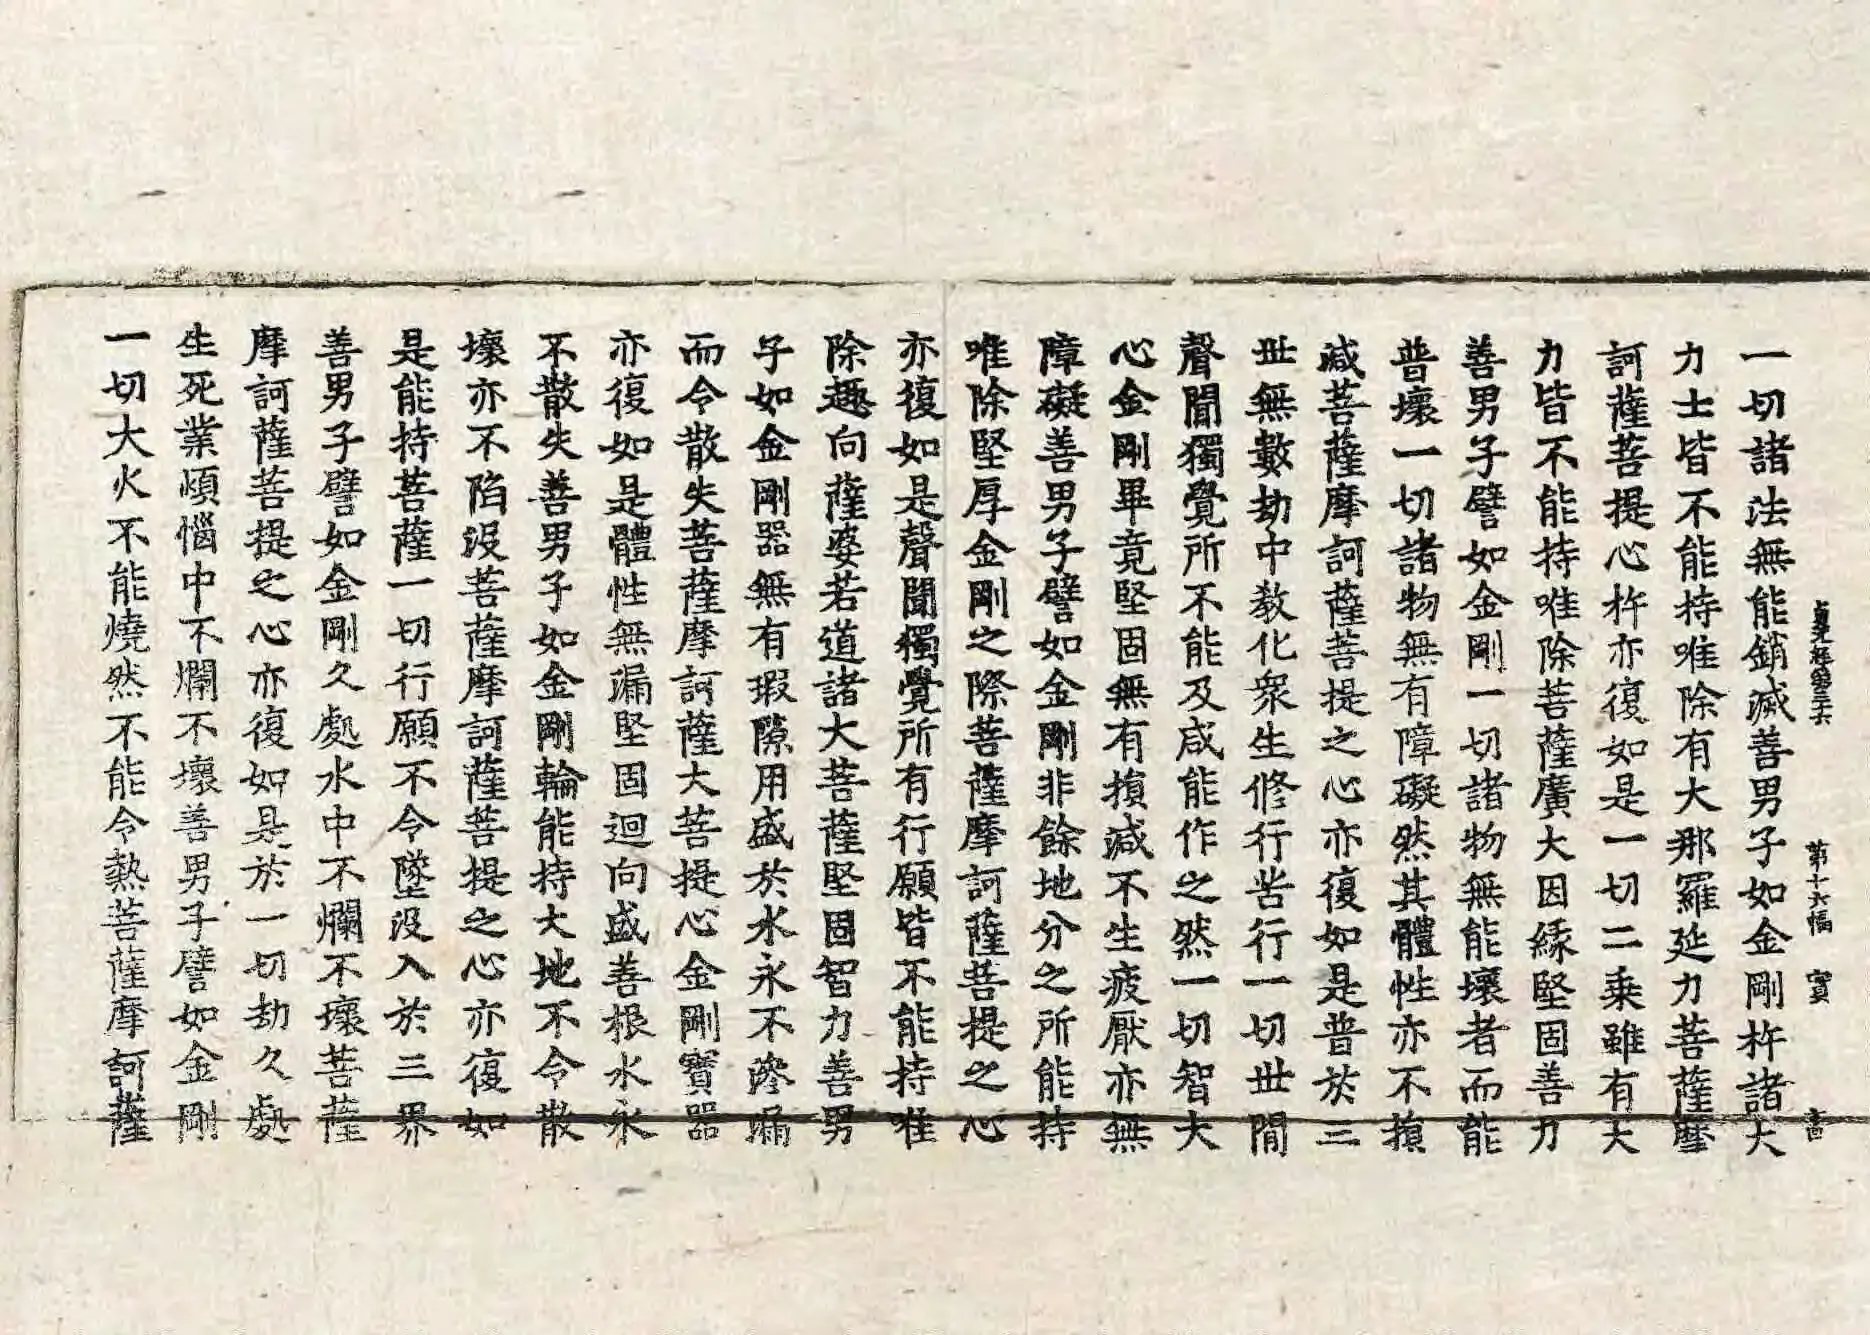 貞元經第三十六 第十六幅 寶
一切諸法無能銷滅善男子如金剛杵諸大
力士皆不能持唯除有大那羅延力菩薩摩
訶薩菩提心杵亦復如是一切二乘雖有大
力皆不能持唯除菩薩廣大因緣堅固善力
善男子譬如金剛一切諸物無能壞者而能
普壞一切諸物無有障礙然其體性亦不損
減菩薩摩訶薩菩提之心亦復如是普於三
世無數劫中教化衆生修行苦行一切世間
聲聞獨覺所不能及咸能作之然一切智大
心金剛畢竟堅固無有損減不生疲厭亦無
障礙善男子譬如金剛非餘地分之所能持
唯除堅厚金剛之際菩薩摩訶薩菩提之心
亦復如是聲聞獨覺所有行願皆不能持唯
除趣向薩婆若道諸大菩薩堅固智力善男
子如金剛器無有瑕隙用盛於水永不滲漏
而令散失菩薩摩訶薩大菩提心金剛寶器
亦復如是體性無漏堅固迴向盛善根水永
不散失善男子如金剛輪能持大地不令散
壞亦不陷沒菩薩摩訶薩菩提之心亦復如
是能持菩薩一切行願不令墜沒入於三界
善男子譬如金剛久處水中不爛不壞菩薩
摩訶薩菩提之心亦復如是於一切劫久處
生死業煩惱中不爛不壞善男子譬如金剛
一切大火不能燒然不能令熱菩薩摩訶薩